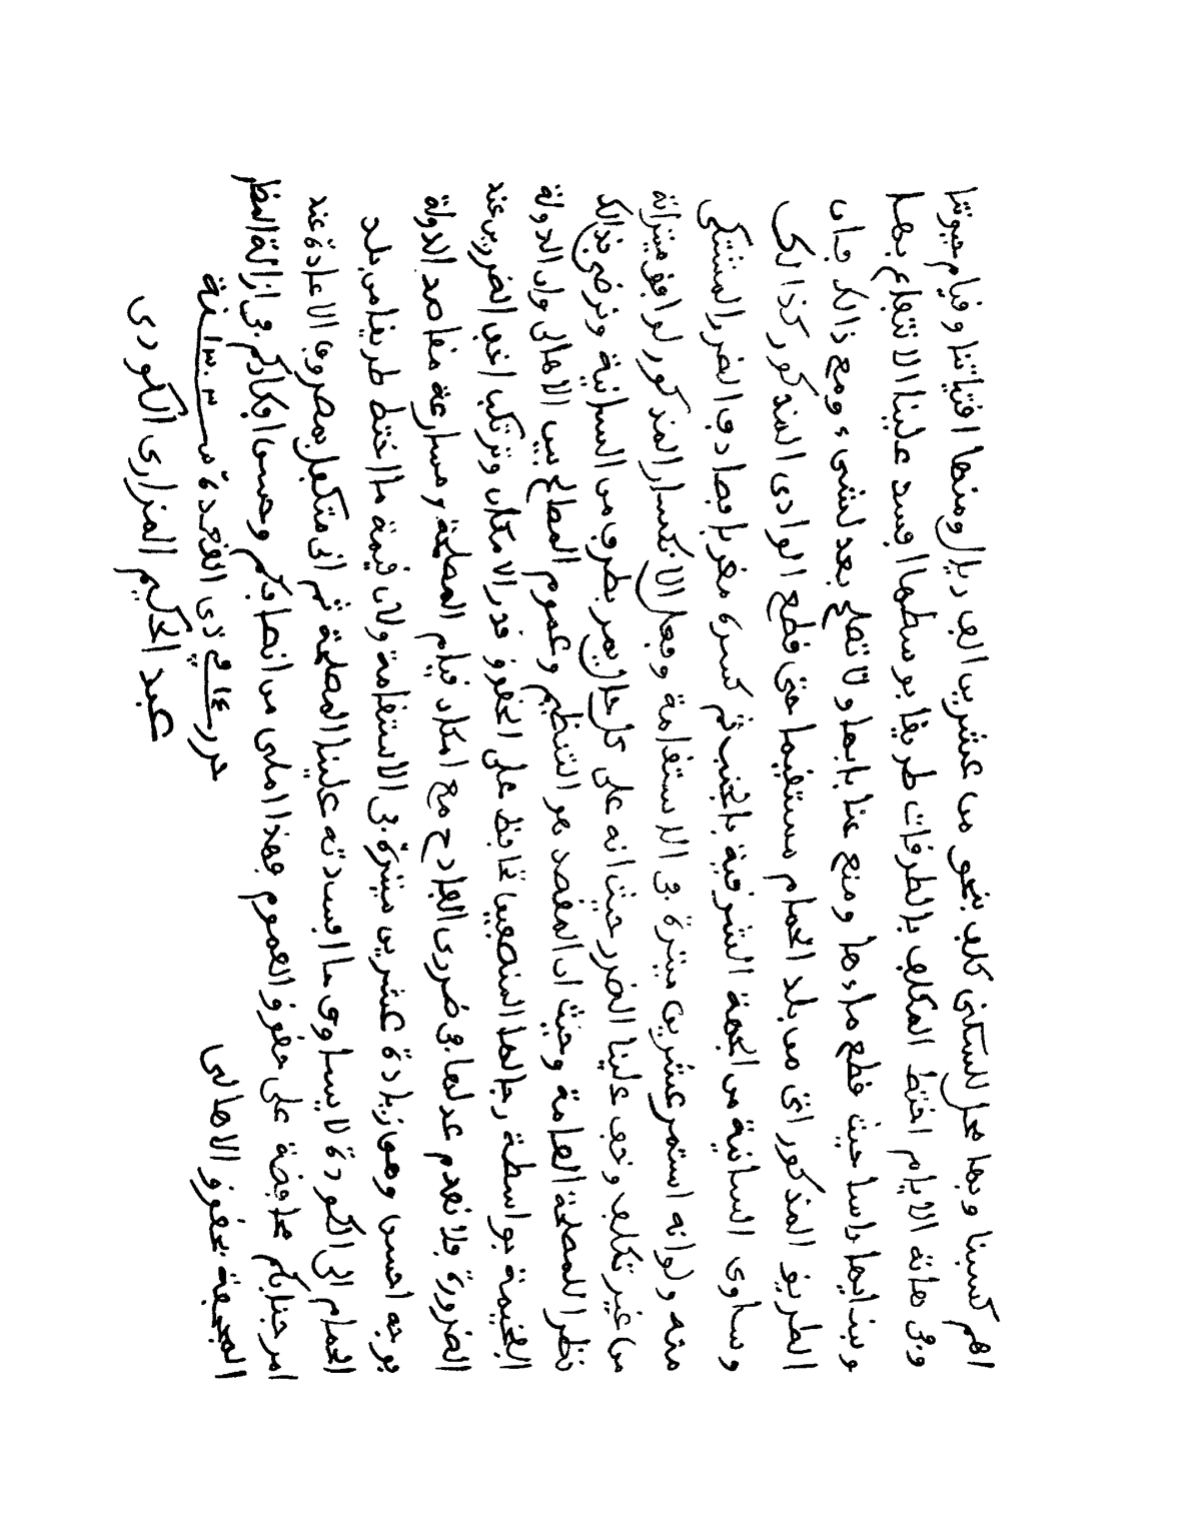 اهم كسبنا وبها محل للسكنى كلف بنحو من عشرين الف ريال ومنها اقتياتنا وقيام حيوتنا
وفى هاته الايام اختط المكلف بالطرقات طريقا بوسطها افسد علينا الانتفاع بها
وبنداتها راسا حيث قطع ماءها ومنع عنا بابها ولا تصلح بعد لشىء ومع ذالك فان
الطريق المذكور اتى من بلد الحمام مستقيما حتى قطع الوادى المذكور كذالك
وساوى السانية من الجهة الشرقية بالجنب ثم كسره مغربا فصادف الضرر المشتكى
منه ولوانه استمر عشرين ميترة فى الاستقامة وفعل الانكسار المذكور لوافق ميتراته
من غير تكلف وخف علينا الضرر حيث انه على كل حال يمر بطرف من السانية ونرضى بذالك
نظرا للمصلحة العامة وحيث ان المقصد هو التنظيم وعموم المصالح بين الاهالى وان الدولة
الفخيمة بواسطة رجالها المنصفين تحافظ على الحقوق قدر الامكان وترتكب اخف الضررين عند
الضرورة فلا نعدم عدلها فى ضررى الفادح مع امكان قيام المصلحة ومسارعة مقاصد الدولة
بوجه احسن وهو زيادة عشرين ميترة فى الاستقامة ولان قيمة ما اختط طريقا من بلد
الحمام الى الكودة لا يساوى ما افسدته علينا المصلحة ثم انى متكفل بمصروف الاعادة عند
امر جنابكم محافظة على حقوق العموم فهذا املى من انصافكم وحسن افكاركم فى ازالة المظ
المجحفة بحقوق الاهالى حرر ١٤ فى ذى القعدة سنة ١٣٠٣
عبد الحكيم المزارى الكودى